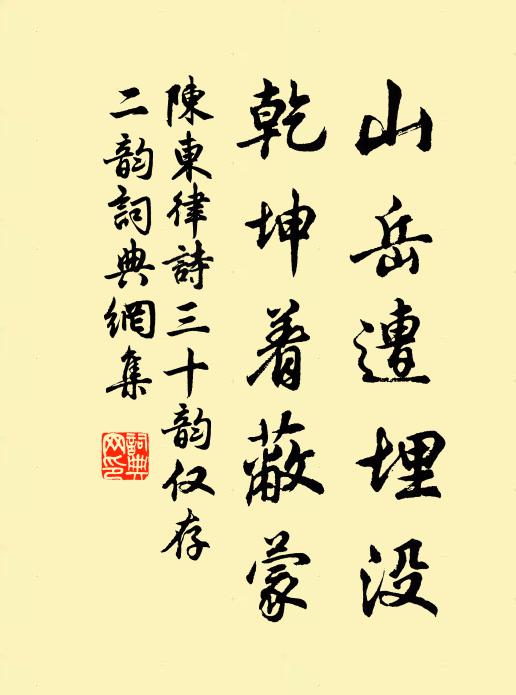 山岳遭埋没
乾坤着蔽蒙
陳東律詩三十韵仅存
二韵詞典網集
詞典網印